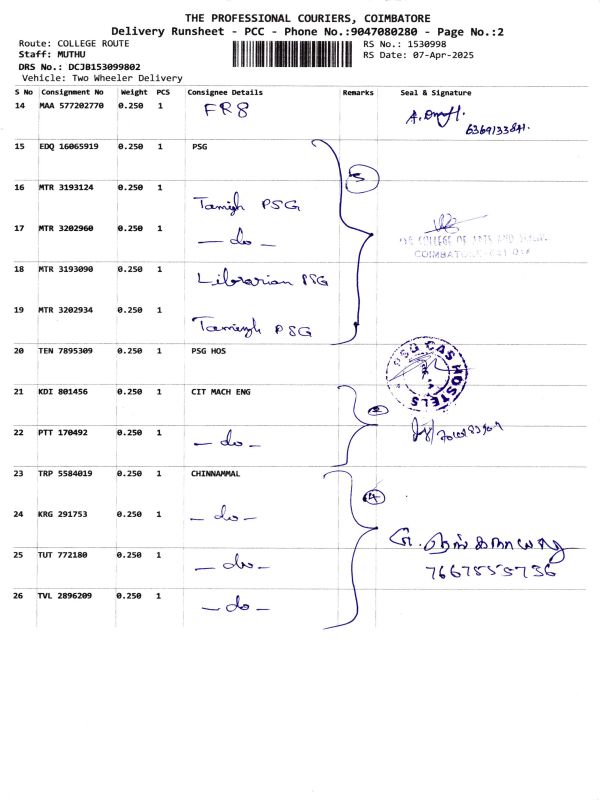 THE PROFESSIONAL COURIERS, COIMBATORE
Delivery Runsheet - PCC - Phone No.:9047080280 - Page No.:2
Route: COLLEGE ROUTE RS No.: 1530998
Staff: MUTHU RS Date: 07-Apr-2025
DRS No.: DCJB153099802
Vehicle: Two Wheeler Delivery
S No Consignment No Weight PCS Consignee Details Remarks Seal & Signature
14 MAA 577202770 0.250 1 FR8
6369133841.
15 EDQ 16065919 0.250 1 PSG
5
16 MTR 3193124 0.250 1 PSG
17 MTR 3202960 0.250 1 — do —
PSG COLLEGE OF ARTS AND
COIMBATORE-641 014
18 MTR 3193090 0.250 1 Librarian PSG
19 MTR 3202934 0.250 1 PSG
20 TEN 7895309 0.250 1 PSG HOS
PSG CAS HOSTELS
21 KDI 801456 0.250 1 CIT MACH ENG
2
22 PTT 170492 0.250 1 — do —
23 TRP 5584019 0.250 1 CHINNAMMAL
4
24 KRG 291753 0.250 1 — do —
25 TUT 772180 0.250 1 — do —
7667555736
26 TVL 2896209 0.250 1 — do —